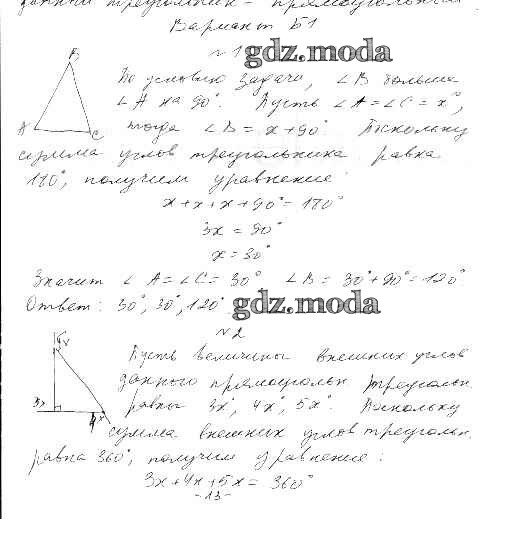 данный треугольник - прямоугольный
Вариант Б1
№1 gdz.moda
B
По условию задачи, ∠B больше
∠A на 90°. Пусть ∠A = ∠C = x°,
A C тогда ∠B = x + 90°. Поскольку
сумма углов треугольника равна
180°, получим уравнение:
x + x + x + 90° = 180°
3x = 90°
x = 30°
Значит ∠A = ∠C = 30° ∠B = 30° + 90° = 120°
Ответ: 30°, 30°, 120° gdz.moda
№2
Пусть величины внешних углов
данного прямоугольн треугольн.
3x равны 3x°, 4x°, 5x°. Поскольку
4x
сумма внешних углов треугольн.
равна 360°, получим уравнение:
3x + 4x + 5x = 360°
-13-